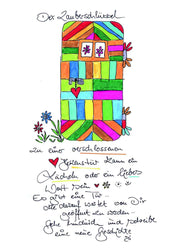 Der Zauberschlüssel
zu einer verschlossenen
Herzenstür kann ein
Lächeln oder ein liebes
Wort sein
Es gibt eine Tür
die darauf wartet von Dir
geöffnet zu werden
Gehe hindurch und schreibe
eine neue Geschichte